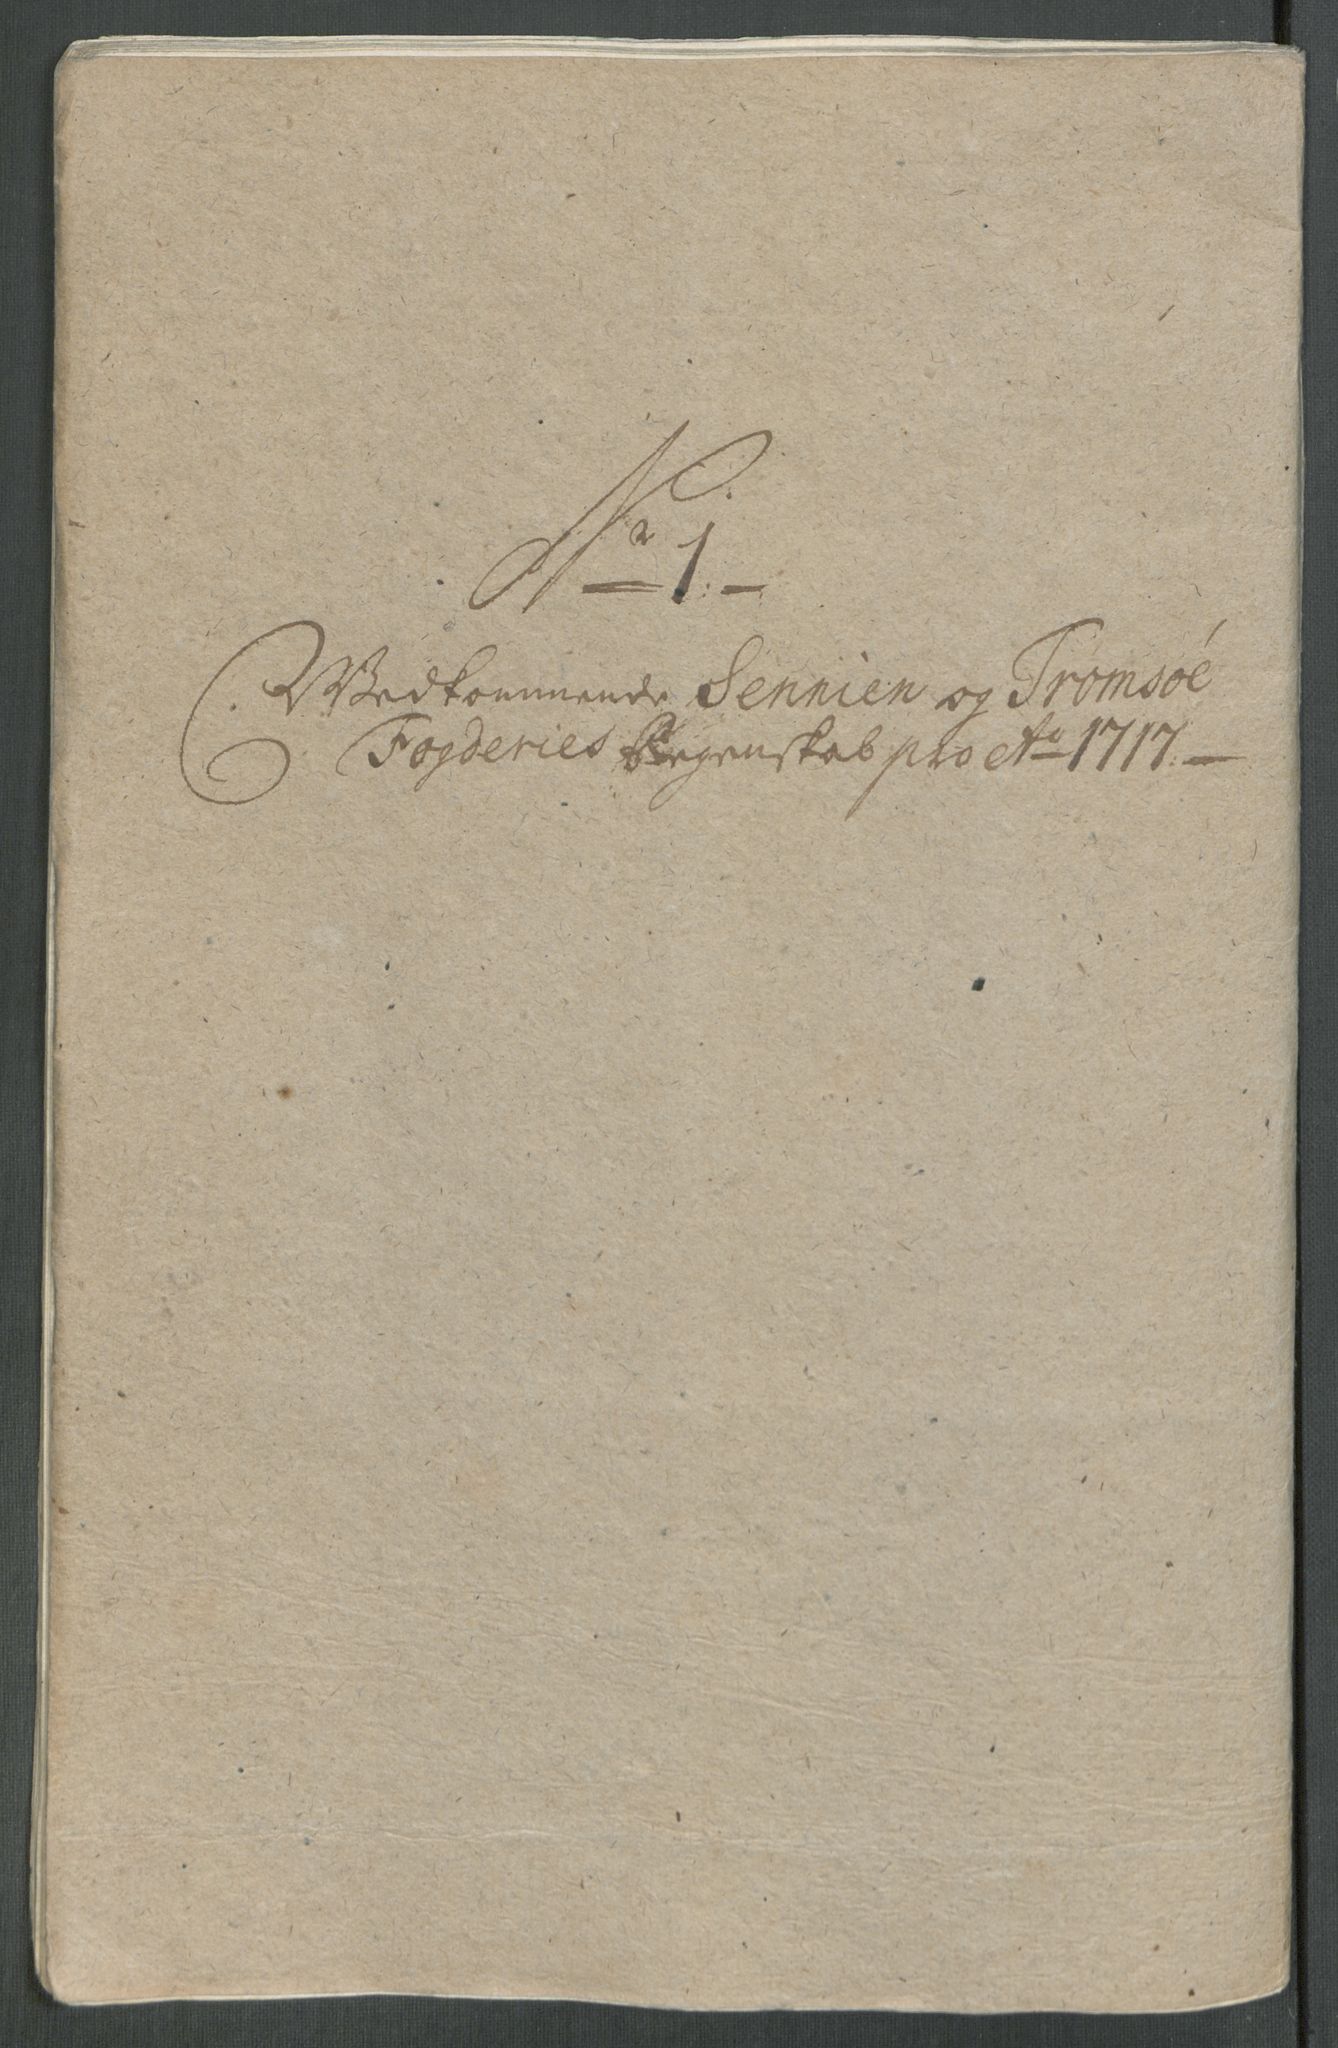 Nr 1.
Vedkommende Sennien og Tromsøe
Fogderies Regenskab pro Ao 1717.